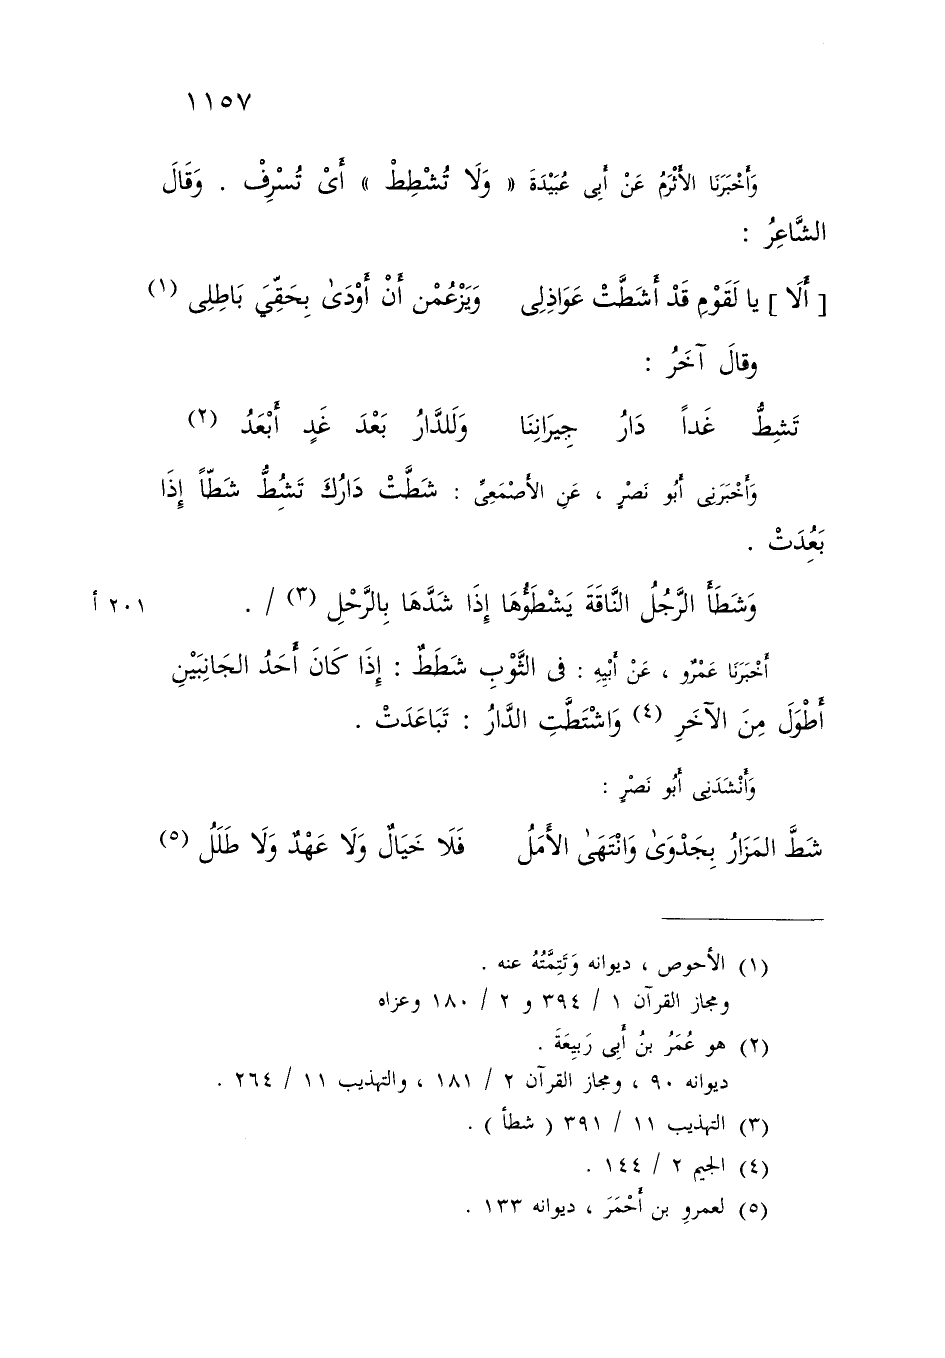 ١١٥٧
وَأَخْبَرَنَا الأَثْرَمُ عَنْ أَبِى عُبَيْدَةَ « وَلَا تُشْطِطْ » أَىْ تُسْرِفْ . وَقَالَ
الشَّاعِرُ :
[ أَلَا ] يا لَقَوْمِ قَدْ أَشَطَّتْ عَوَاذِلِى وَيَزْعُمْن أَنْ أَوْدَىٰ بِحَقِّيَ بَاطِلِى (١)
وقالَ آخَرُ :
تَشِطُّ غَداً دَارُ جِيرَانِنَا وَلَلدَّارُ بَعْدَ غَدٍ أَبْعَدُ (٢)
وَأَخْبَرَنِى أَبُو نَصْرٍ ، عَنِ الأَصْمَعِىِّ : شَطَّتْ دَارُكَ تَشُِطُّ شَطّاً إِذَا
بَعُدَتْ .
وَشَطَأَ الرَّجُلُ النَّاقَةَ يَشْطَؤُهَا إِذَا شَدَّهَا بِالرَّحْلِ (٣) / . ٢٠١ أ
أَخْبَرَنَا عَمْرٌو ، عَنْ أَبِيْهِ : فى الثَّوْبِ شَطَطٌ : إِذَا كَانَ أَحَدُ الجَانِبَيْنِ
أَطْوَلَ مِنَ الآخَرِ (٤) وَاشْتَطَّتِ الدَّارُ : تَبَاعَدَتْ .
وَأَنْشَدَنِى أَبُو نَصْرٍ :
شَطَّ المَزَارُ بِجَدْوَىٰ وَانْتَهَىٰ الأَمَلُ فَلَا خَيَالٌ وَلَا عَهْدٌ وَلَا طَلَلُ (٥)
(١) الأحوص ، ديوانه وَتَتِمَّتُهُ عنه .
ومجاز القرآن ١ / ٣٩٤ و ٢ / ١٨٠ وعزاه
(٢) هو عُمَرُ بنُ أَبِى رَبِيعَةَ .
ديوانه ٩٠ ، ومجاز القرآن ٢ / ١٨١ ، والتهذيب ١١ / ٢٦٤ .
(٣) التهذيب ١١ / ٣٩١ ( شطأ ) .
(٤) الجيم ٢ / ١٤٤ .
(٥) لعمروِ بن أَحْمَرَ ، ديوانه ١٣٣ .